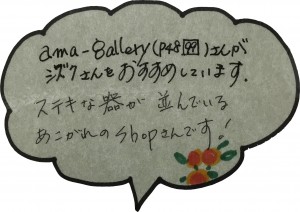 ama-gallery(P48 99)さんが
シズクさんをおすすめしています.
ステキな器が並んでいる
あこがれのshopさんです!